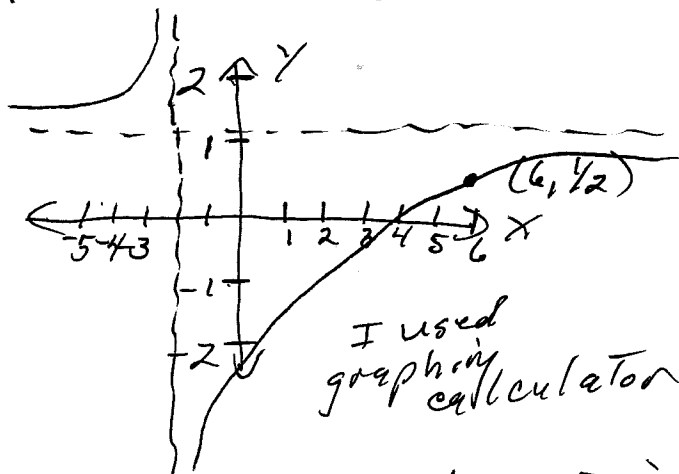 2 Y
1
(6, 1/2)
-5 -4 -3 1 2 3 4 5 6 X
-1
-2
I used
graphing
calculator